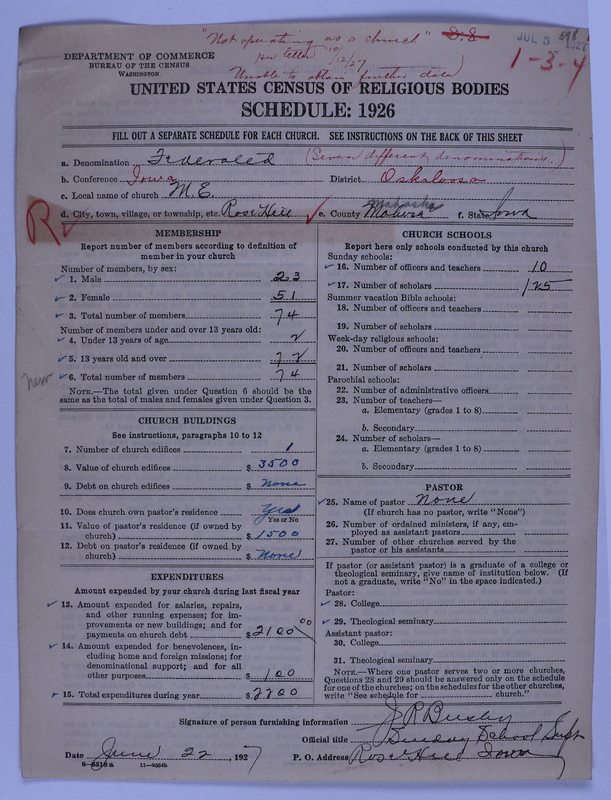 "Not operating as a church" D.S.
per letter 10/12/27
Unable to obtain further data)
JUL 5 1927
1-3-4
DEPARTMENT OF COMMERCE
BUREAU OF THE CENSUS
WASHINGTON
UNITED STATES CENSUS OF RELIGIOUS BODIES
SCHEDULE: 1926
FILL OUT A SEPARATE SCHEDULE FOR EACH CHURCH. SEE INSTRUCTIONS ON THE BACK OF THIS SHEET
a. Denomination Federated (Seven different denominations.)
b. Conference Iowa District Oskaloosa
c. Local name of church M. E.
R
d. City, town, village, or township, etc. Rose Hill e. County Mahaska f. State Iowa
MEMBERSHIP
Report number of members according to definition of
member in your church
Number of members, by sex:
1. Male 23
2. Female 51
3. Total number of members 74
Number of members under and over 13 years old:
4. Under 13 years of age 2
5. 13 years old and over 72
new
6. Total number of members 74
NOTE.—The total given under Question 6 should be
same as the total of males and females given under Question 3.
CHURCH BUILDINGS
See instructions, paragraphs 10 to 12
7. Number of church edifices 1
8. Value of church edifices $ 3500
9. Debt on church edifices $ None
10. Does church own pastor's residence Yes
Yes or No
11. Value of pastor's residence (if owned by
church) $ 1500
12. Debt on pastor's residence (if owned by
church) $ None
EXPENDITURES
Amount expended by your church during last fiscal year
13. Amount expended for salaries, repairs,
and other running expenses; for im-
provements or new buildings; and for
payments on church debt $ 2100 00
14. Amount expended for benevolences, in-
cluding home and foreign missions; for
denominational support; and for all
other purposes $ 100
15. Total expenditures during year $ 2200
CHURCH SCHOOLS
Report here only schools conducted by this church
Sunday schools:
16. Number of officers and teachers 10
17. Number of scholars 125
Summer vacation Bible schools:
18. Number of officers and teachers
19. Number of scholars
Week-day religious schools:
20. Number of officers and teachers
21. Number of scholars
Parochial schools:
22. Number of administrative officers
23. Number of teachers—
a. Elementary (grades 1 to 8)
b. Secondary
24. Number of scholars—
a. Elementary (grades 1 to 8)
b. Secondary
PASTOR
25. Name of pastor None
(If church has no pastor, write "None")
26. Number of ordained ministers, if any, em-
ployed as assistant pastors
27. Number of other churches served by the
pastor or his assistants
If pastor (or assistant pastor) is a graduate of a college or
theological seminary, give name of institution below. (If
not a graduate, write "No" in the space indicated.)
Pastor:
28. College
29. Theological seminary
Assistant pastor:
30. College
31. Theological seminary
NOTE.—Where one pastor serves two or more churches,
Questions 28 and 29 should be answered only on the schedule
for one of the churches; on the schedules for the other churches,
write "See schedule for church."
Signature of person furnishing information J R Busby
Official title Sunday School Supt
Date June 22, 1927 P. O. Address Rose Hill Iowa